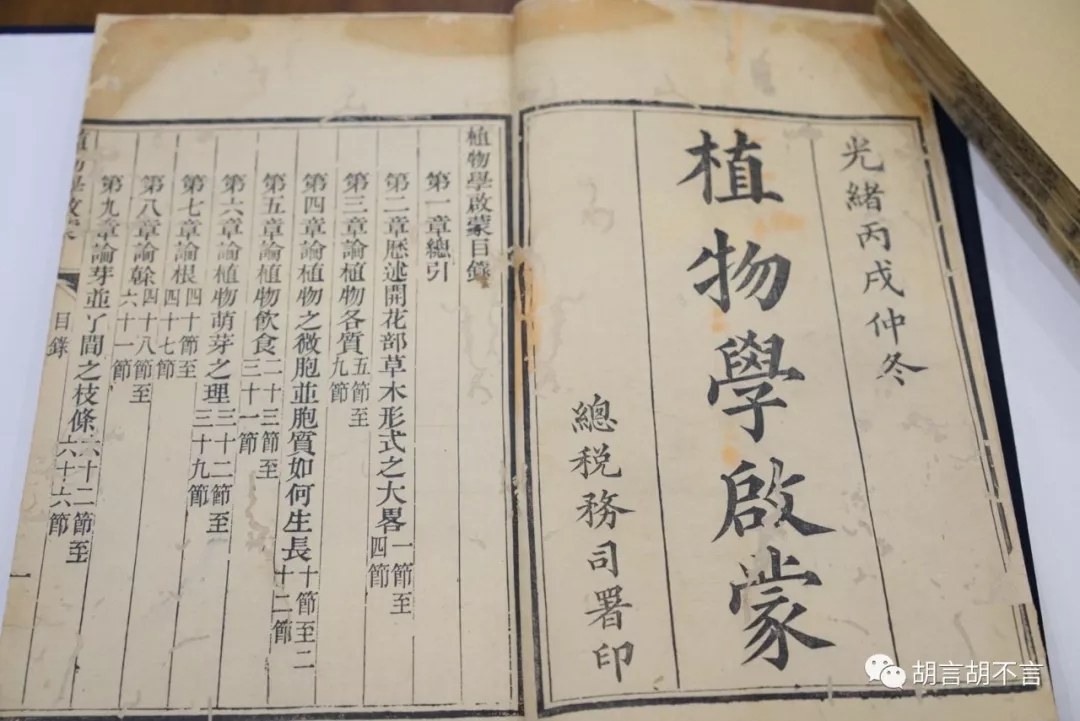 光緒丙戌仲冬
植物學啟蒙
總稅務司署印
植物學啟蒙目錄
第一章總引
第二章歷述開花部草木形式之大畧一節至四節
第三章論植物各質五節至九節
第四章論植物之微胞並胞質如何生長十節至二十二節
第五章論植物飲食二十三節至三十一節
第六章論植物萌芽之理三十二節至三十九節
第七章論根四十節至四十七節
第八章論榦四十八節至六十一節
第九章論芽並丫間之枝條六十二節至六十六節
植物學啟蒙
目錄
一
胡言胡不言